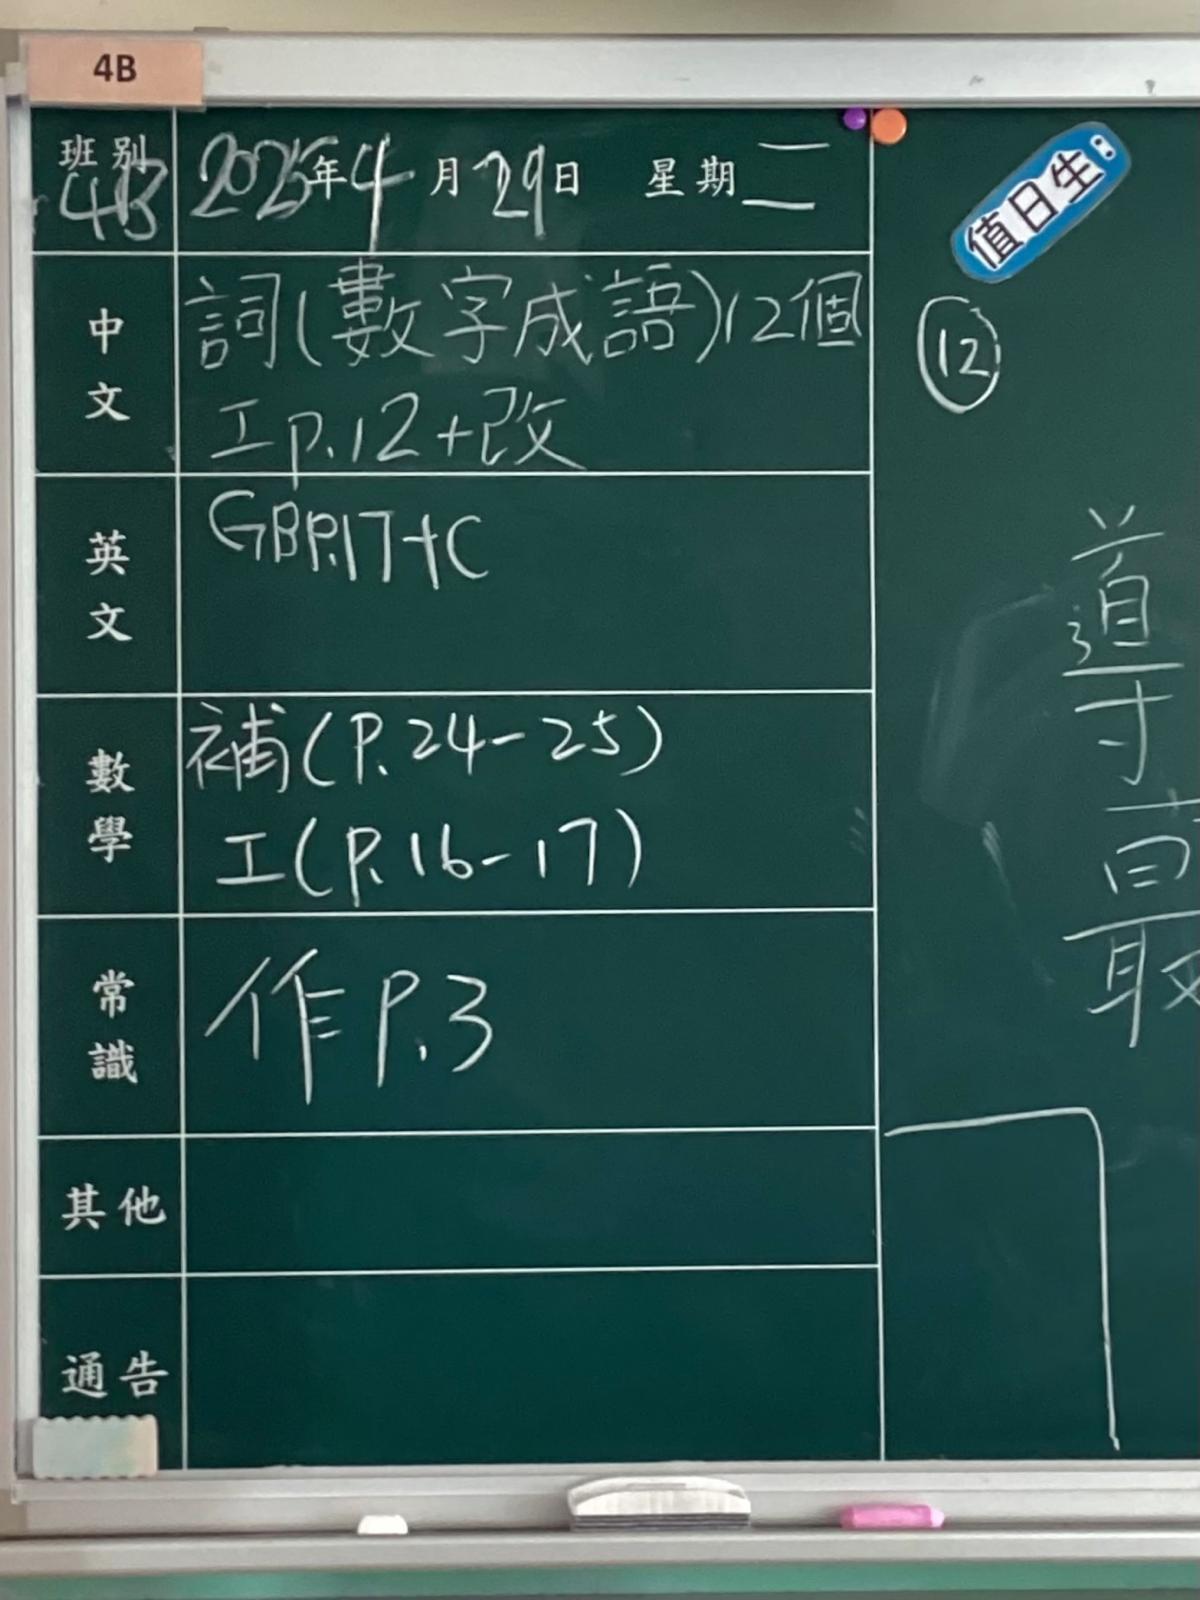 4B
班別 4B 2025年4月29日 星期二
中文
詞(數字成語)12個
工P.12+改
英文
GBP.17+C
數學
補(P.24-25)
工(P.16-17)
常識
作P.3
其他
通告
值日生
12
導
最